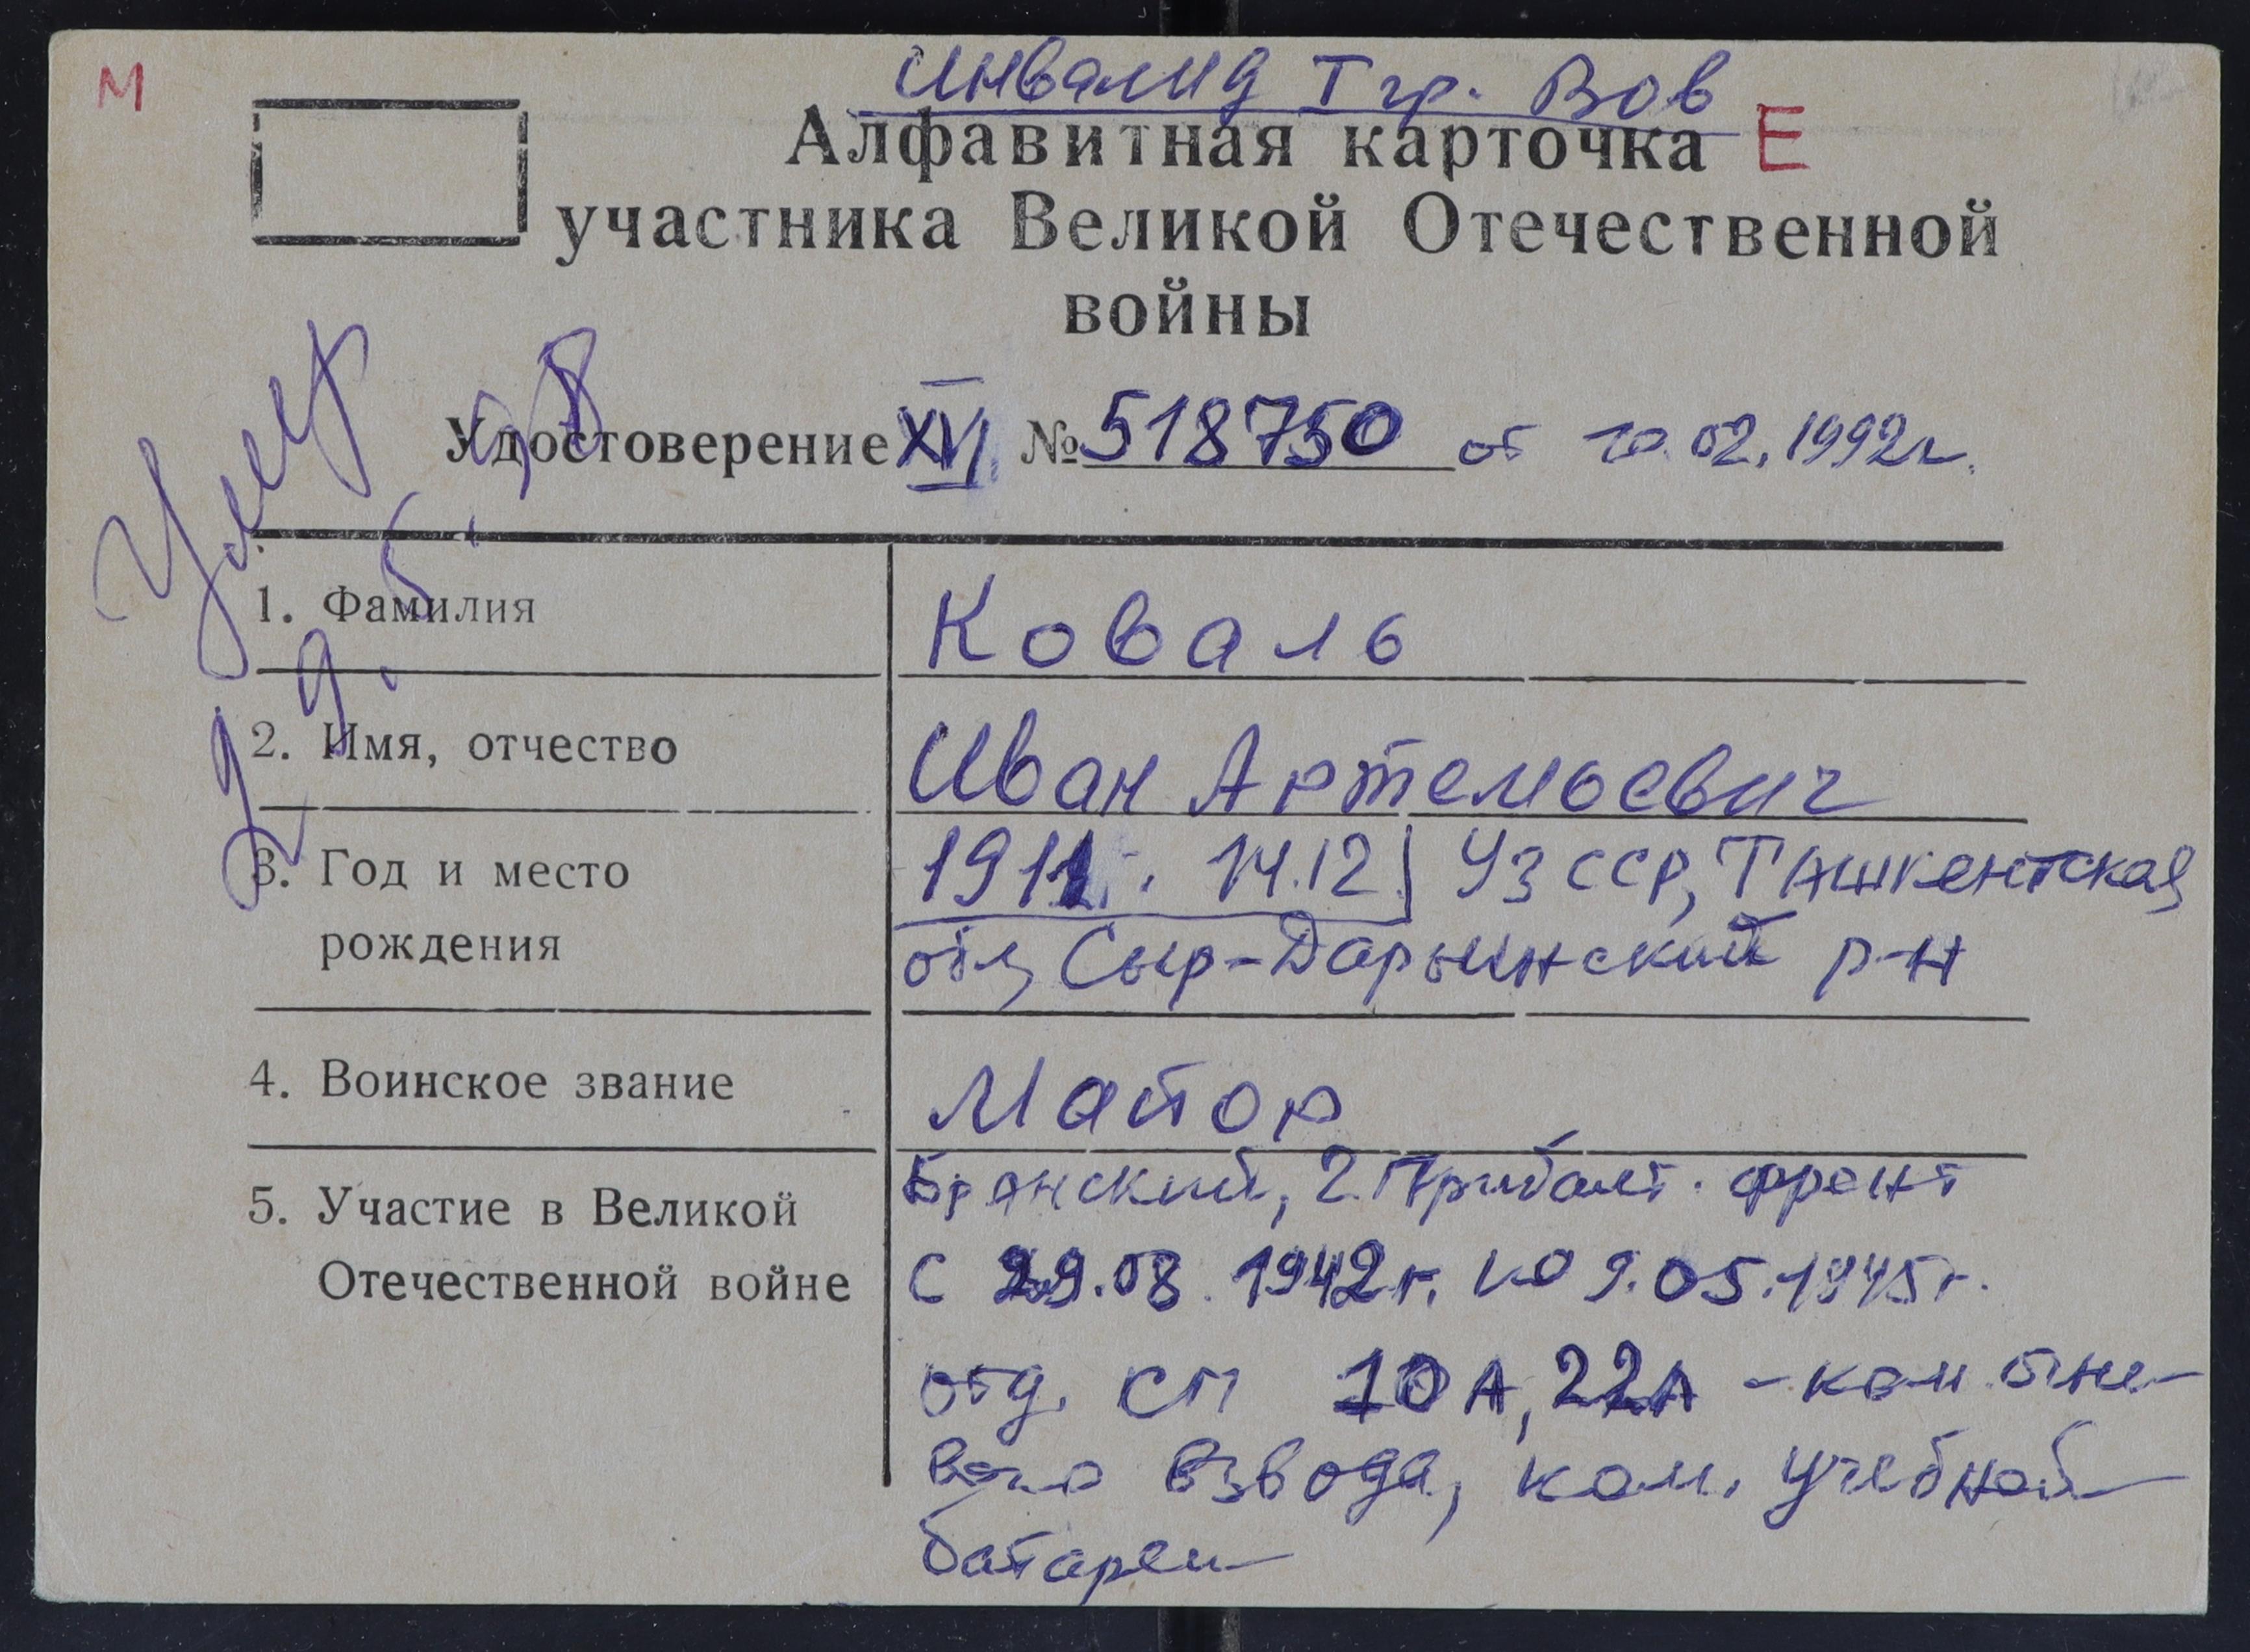 М
инвалид I гр. Вов
Алфавитная карточка Е
участника Великой Отечественной
войны
Умер
Удостоверение XVI № 518750 от 10.02.1992г.
1. Фамилия Коваль
2. Имя, отчество Иван Артемьевич
3. Год и место рождения 1911г. 14.12 Уз ССР, Ташкентская
обл, Сыр-Дарьинский р-н
4. Воинское звание Майор
5. Участие в Великой Отечественной войне Брянский, 2 Прибалт. фронт
с 29.08.1942г. по 9.05.1945г.
отд. сп 10А, 22А - ком. огне-
вого взвода, ком. учебной
батареи